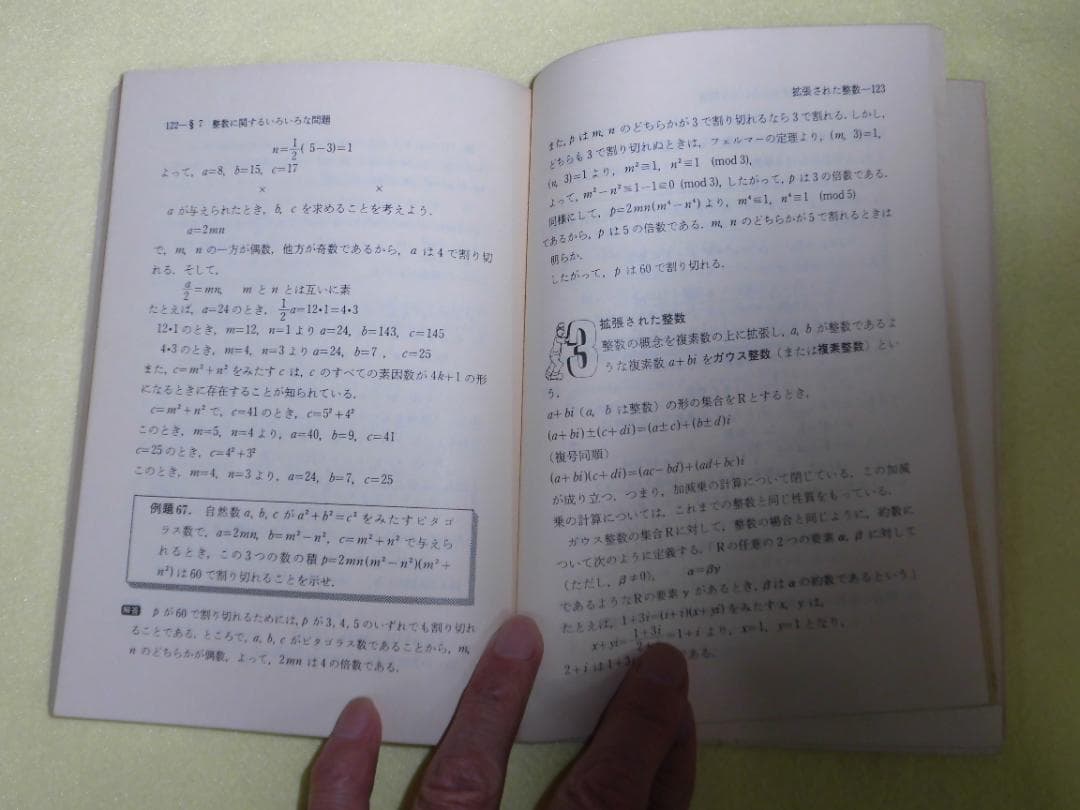 122—§7 整数に関するいろいろな問題
n=1/2(5−3)=1
よって, a=8, b=15, c=17
× ×
aが与えられたとき, b, cを求めることを考えよう.
a=2mn
で, m, nの一方が偶数, 他方が奇数であるから, aは4で割り切
れる. そして,
a/2=mn, mとnとは互いに素
たとえば, a=24のとき, 1/2a=12・1=4・3
12・1のとき, m=12, n=1よりa=24, b=143, c=145
4・3のとき, m=4, n=3よりa=24, b=7, c=25
また, c=m²+n²をみたすcは, cのすべての素因数が4k+1の形
になるときに存在することが知られている.
c=m²+n²で, c=41のとき, c=5²+4²
このとき, m=5, n=4より, a=40, b=9, c=41
c=25のとき, c=4²+3²
このとき, m=4, n=3より, a=24, b=7, c=25
例題67. 自然数a, b, cがa²+b²=c²をみたすピタゴ
ラス数で, a=2mn, b=m²−n², c=m²+n²で与えら
れるとき, この3つの数の積p=2mn(m²−n²)(m²+
n²)は60で割り切れることを示せ.
解答 pが60で割り切れるためには, pが3, 4, 5のいずれでも割り切れ
ることである. ところで, a, b, cがピタゴラス数であることから, m,
nのどちらかが偶数, よって, 2mnは4の倍数である.
拡張された整数—123
また, pはm, nのどちらかが3で割り切れるなら3で割れる. しかし,
どちらも3で割り切れぬときは, フェルマーの定理より, (m, 3)=1,
(n, 3)=1より, m²≡1, n²≡1 (mod 3),
よって, m²−n²≡1−1≡0 (mod 3), したがって, pは3の倍数である.
同様にして, p=2mn(m⁴−n⁴)より, m⁴≡1, n⁴≡1 (mod 5)
であるから, pは5の倍数である. m, nのどちらかが5で割れるときは
明らか.
したがって, pは60で割り切れる.
3 拡張された整数
整数の概念を複素数の上に拡張し, a, bが整数であるよ
うな複素数a+biをガウス整数(または複素整数)とい
う.
a+bi(a, bは整数)の形の集合をRとするとき,
(a+bi)±(c+di)=(a±c)+(b±d)i
(複号同順)
(a+bi)(c+di)=(ac−bd)+(ad+bc)i
が成り立つ. つまり, 加減乗の計算について閉じている. この加減
乗の計算については, これまでの整数と同じ性質をもっている.
ガウス整数の集合Rに対して, 整数の場合と同じように, 約数に
ついて次のように定義する.「Rの任意の2つの要素α, βに対して
(ただし, β≠0), α=βγ
であるようなRの要素γがあるとき, βはαの約数であるという」
たとえば, 1+3i=(2+i)(x+yi)をみたすx, yは,
x+yi=1+3i/2 =1+iより, x=1, y=1となり,
2+iは1+3 である.